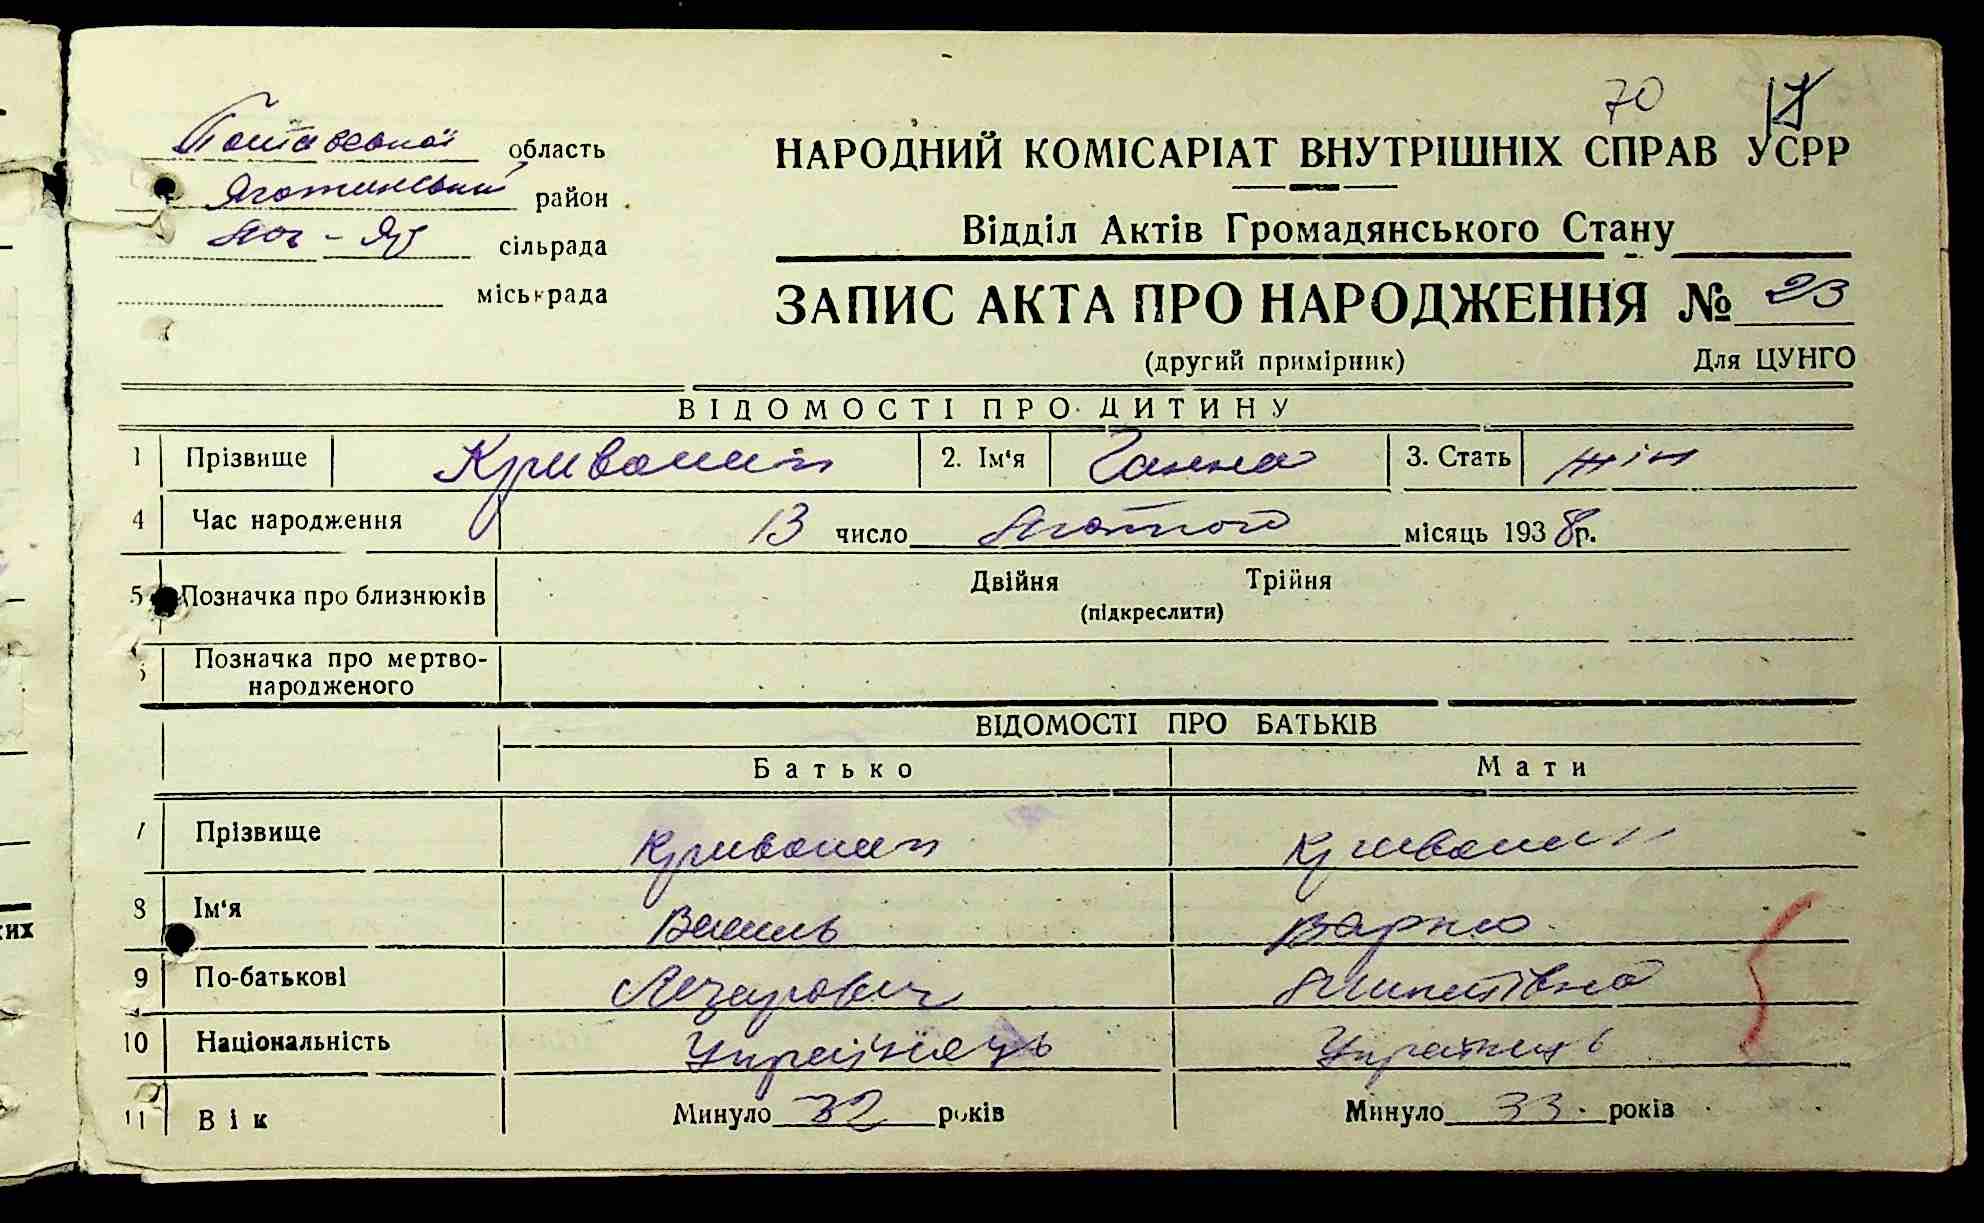 70 17
Полтавської область
Яготинський район
сільрада
міськрада
НАРОДНИЙ КОМІСАРІАТ ВНУТРІШНІХ СПРАВ УСРР
Відділ Актів Громадянського Стану
ЗАПИС АКТА ПРО НАРОДЖЕННЯ № 23
(другий примірник) Для ЦУНГО
ВІДОМОСТІ ПРО ДИТИНУ
1 Прізвище 2. Ім'я Ганна 3. Стать жін
4 Час народження 13 число Лютого місяць 1938р.
5 Позначка про близнюків Двійня Трійня
(підкреслити)
Позначка про мертво-
народженого
ВІДОМОСТІ ПРО БАТЬКІВ
Батько Мати
7 Прізвище
8 Ім'я Василь Варка
9 По-батькові Лазарович
10 Національність Українець Українець
11 Вік Минуло 32 років Минуло 33 років
ких